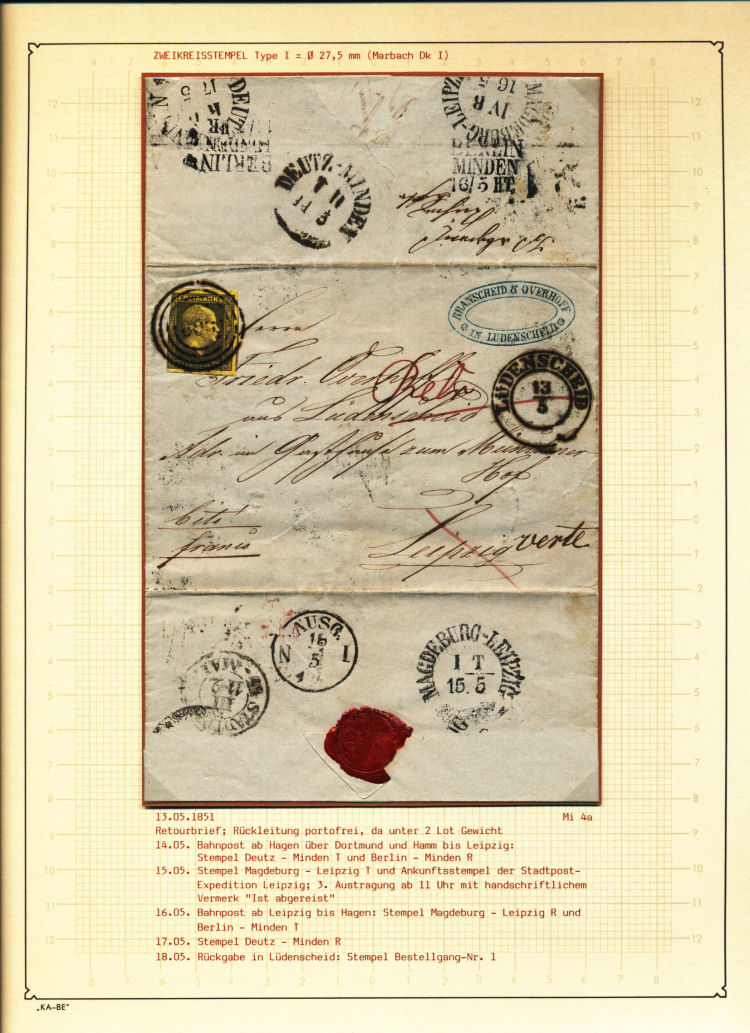 ZWEIKREISSTEMPEL Type I = Ø 27,5 mm (Marbach Dk I)
DEUTZ
17 5
BERLIN
MAGDEBURG-LEIPZ
16 5
IV R
BERLIN
MINDEN
16/5 II T
DEUTZ-MINDEN
II T
14 5
BRANSCHEID & OVERHOFF
IN LÜDENSCHEID
Herrn
Friedr. Overhoff
aus Lüdenscheid
LÜDENSCHEID
13
5
Adr. im Gasthause zum Münchner
Hof
cito
franco
Leipzig verte
AUSG.
N 1
5
MAGDEBURG-LEIPZIG
I T
15. 5
STADT
III
MAI
13.05.1851 Mi 4a
Retourbrief; Rückleitung portofrei, da unter 2 Lot Gewicht
14.05. Bahnpost ab Hagen über Dortmund und Hamm bis Leipzig:
Stempel Deutz - Minden T und Berlin - Minden R
15.05. Stempel Magdeburg - Leipzig T und Ankunftsstempel der Stadtpost-
Expedition Leipzig; 3. Austragung ab 11 Uhr mit handschriftlichem
Vermerk "Ist abgereist"
16.05. Bahnpost ab Leipzig bis Hagen: Stempel Magdeburg - Leipzig R und
Berlin - Minden T
17.05. Stempel Deutz - Minden R
18.05. Rückgabe in Lüdenscheid: Stempel Bestellgang-Nr. 1
„KA-BE"